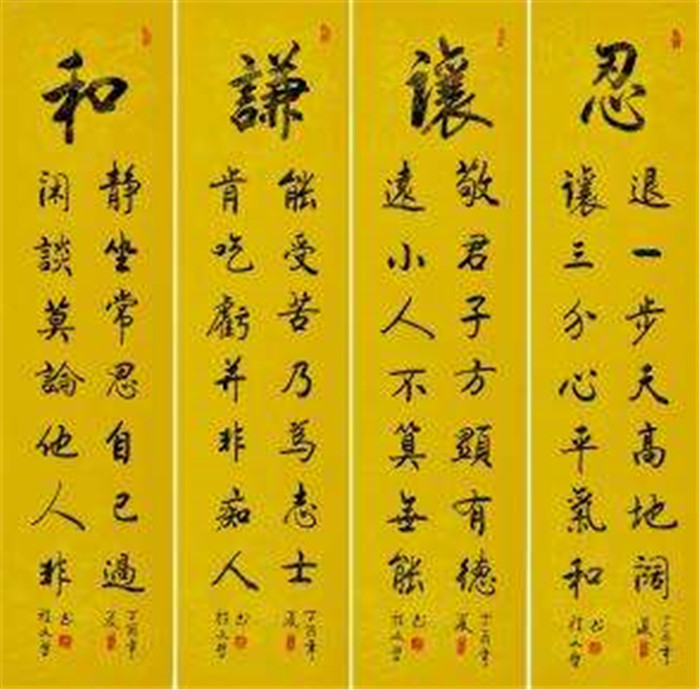 忍
退一步天高地阔
讓三分心平氣和
丁酉年
夏
讓
敬君子方顯有德
遠小人不算無能
丁酉年
夏
謙
能受苦乃為志士
肯吃虧并非痴人
丁酉年
夏
和
静坐常思自己過
闲談莫論他人非
丁酉年
夏